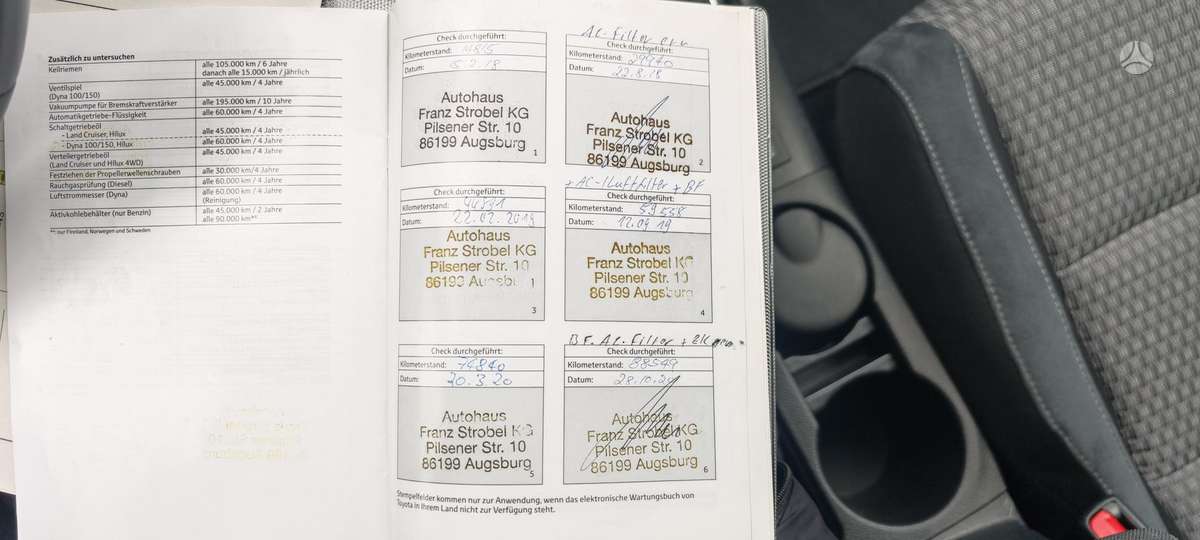 Zusätzlich zu untersuchen
Keilriemen alle 105.000 km / 6 Jahre
danach alle 15.000 km / jährlich
Ventilspiel alle 45.000 km / 4 Jahre
(Dyna 100/150)
Vakuumpumpe für Bremskraftverstärker alle 195.000 km / 10 Jahre
Automatikgetriebe-Flüssigkeit alle 60.000 km / 4 Jahre
Schaltgetriebeöl
- Land Cruiser, Hilux alle 45.000 km / 4 Jahre
- Dyna 100/150, Hilux alle 60.000 km / 4 Jahre
Verteilergetriebeöl alle 45.000 km / 4 Jahre
(Land Cruiser und Hilux 4WD)
Festziehen der Propellerwellenschrauben alle 30.000 km/4 Jahre
Rauchgasprüfung (Diesel) alle 60.000 km / 4 Jahre
Luftstrommesser (Dyna) alle 60.000 km / 4 Jahre
(Reinigung)
Aktivkohlebehälter (nur Benzin) alle 45.000 km / 2 Jahre
alle 90.000 km**
** nur Finnland, Norwegen und Schweden
Check durchgeführt:
Kilometerstand:
Datum: 5.2.18
Autohaus
Franz Strobel KG
Pilsener Str. 10
86199 Augsburg
1
AC-Filter
Check durchgeführt:
Kilometerstand: 29970
Datum: 22.8.18
Autohaus
Franz Strobel KG
Pilsener Str. 10
86199 Augsburg
2
Check durchgeführt:
Kilometerstand: 44891
Datum: 22.02.2019
Autohaus
Franz Strobel KG
Pilsener Str. 10
86199 Augsbu
3
+ AC-/Luftfilter + BF
Check durchgeführt:
Kilometerstand: 59558
Datum: 12.09.19
Autohaus
Franz Strobel KG
Pilsener Str. 10
86199 Augsburg
4
Check durchgeführt:
Kilometerstand: 74840
Datum: 30.3.20
Autohaus
Franz Strobel KG
Pilsener Str. 10
86199 Augsburg
5
BF. AC-Filter +
Check durchgeführt:
Kilometerstand: 88549
Datum: 28.10.20
Autohaus
Franz Strobel KG
Pilsener Str. 10
86199 Augsburg
6
Stempelfelder kommen nur zur Anwendung, wenn das elektronische Wartungsbuch von
Toyota in Ihrem Land nicht zur Verfügung steht.